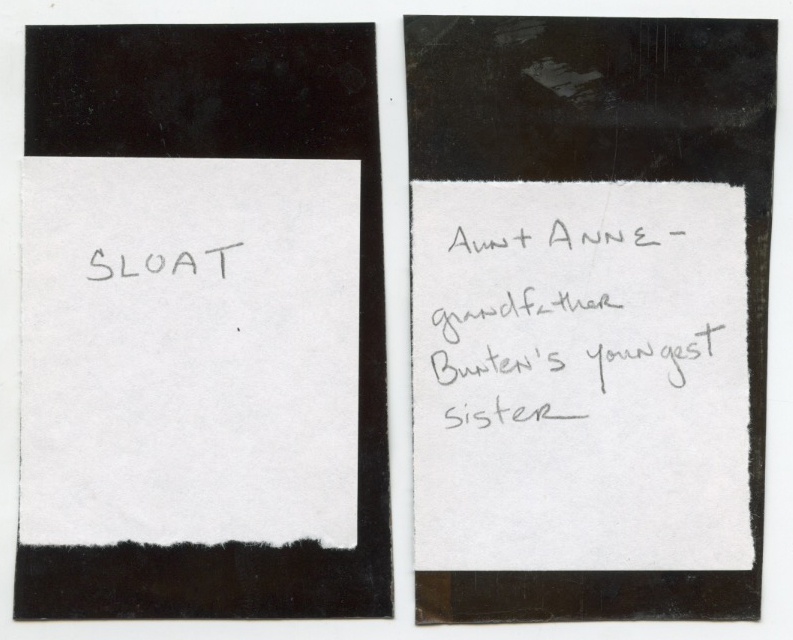 SLOAT
Aunt ANNE -
grandfather
Bunten's youngest
sister